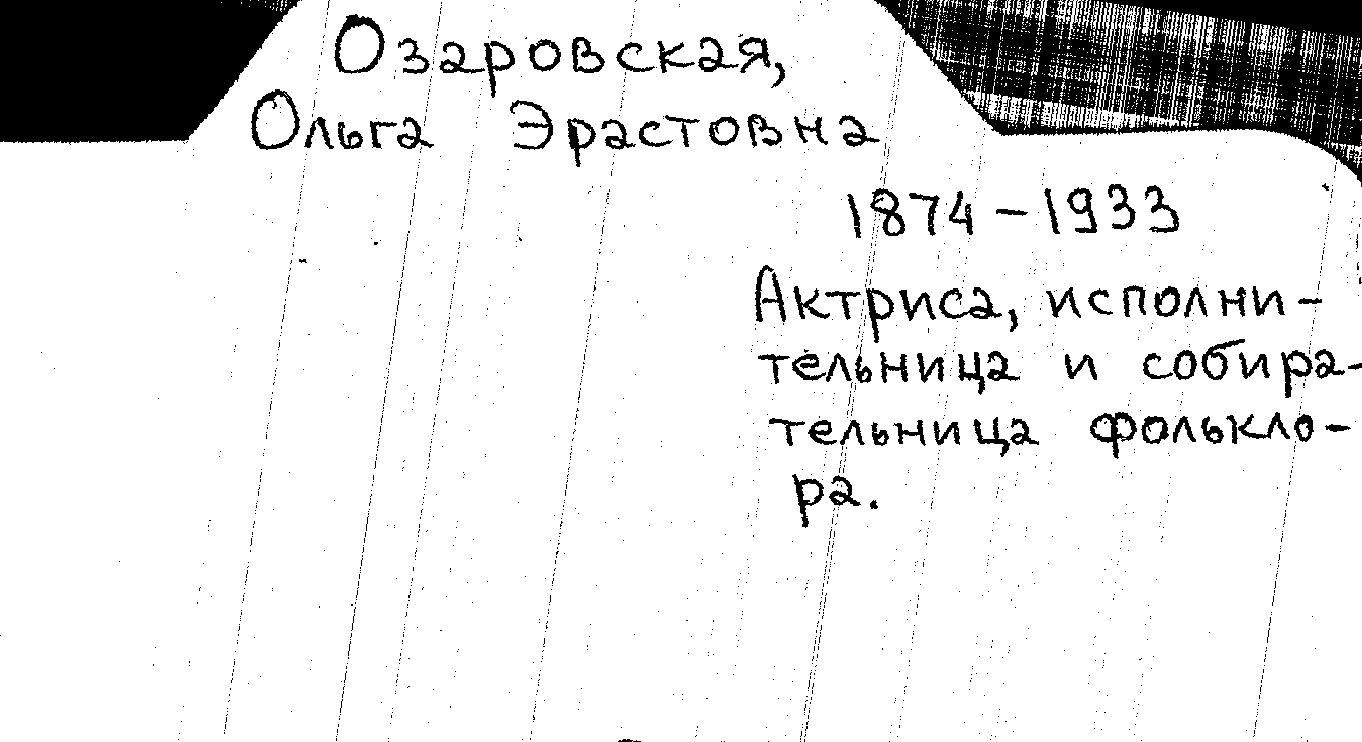 Озаровская,
Ольга Эрастовна
1874-1933
Актриса, исполни-
тельница и собира-
тельница фолькло-
ра.